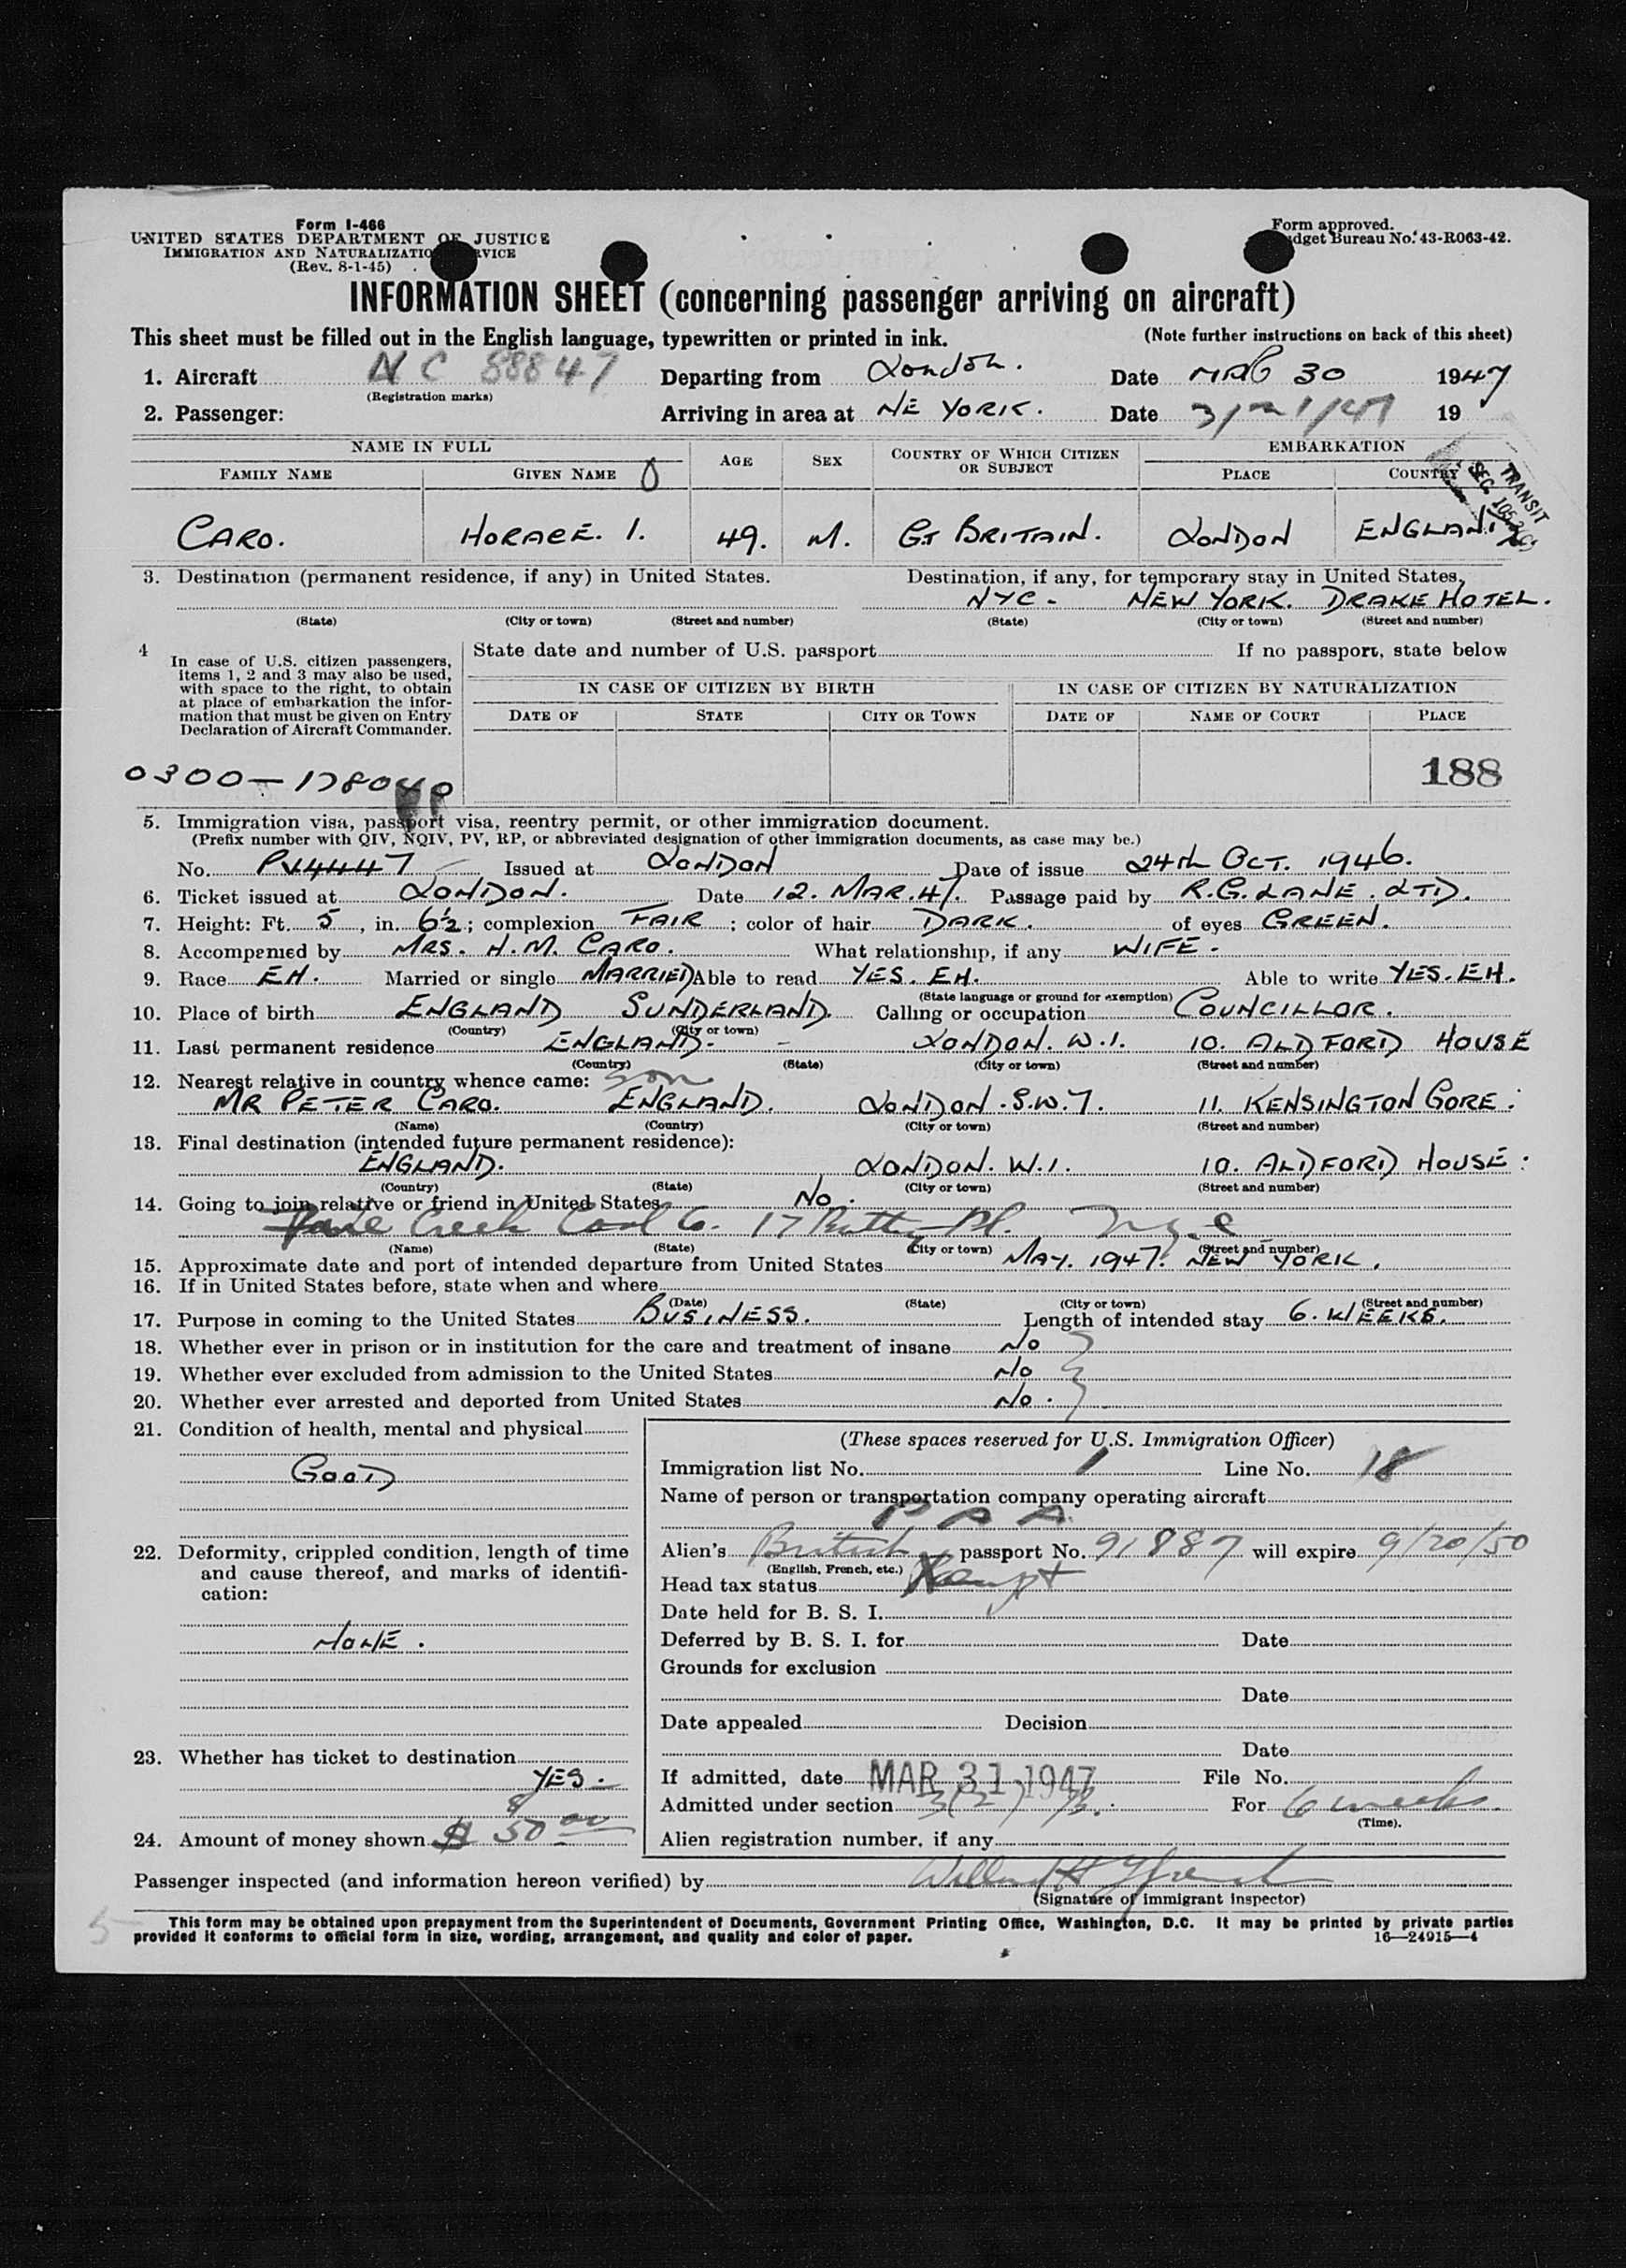 Form I-466
UNITED STATES DEPARTMENT OF JUSTICE
IMMIGRATION AND NATURALIZATION SERVICE
(Rev. 8-1-45)
Form approved.
Budget Bureau No. 43-R063-42.
INFORMATION SHEET (concerning passenger arriving on aircraft)
This sheet must be filled out in the English language, typewritten or printed in ink. (Note further instructions on back of this sheet)
1. Aircraft NC 88847 Departing from London. Date MAR 30 1947
(Registration marks)
2. Passenger: Arriving in area at NE YORK. Date 19
NAME IN FULL AGE SEX COUNTRY OF WHICH CITIZEN OR SUBJECT EMBARKATION
FAMILY NAME GIVEN NAME PLACE COUNTRY
TRANSIT
CARO. HORACE. I. 49. M. GT BRITAIN. LONDON ENGLAND
3. Destination (permanent residence, if any) in United States. Destination, if any, for temporary stay in United States.
NYC - NEW YORK. DRAKE HOTEL.
(State) (City or town) (Street and number) (State) (City or town) (Street and number)
4 In case of U.S. citizen passengers, items 1, 2 and 3 may also be used, with space to the right, to obtain at place of embarkation the information that must be given on Entry Declaration of Aircraft Commander.
State date and number of U.S. passport If no passport, state below
IN CASE OF CITIZEN BY BIRTH IN CASE OF CITIZEN BY NATURALIZATION
DATE OF STATE CITY OR TOWN DATE OF NAME OF COURT PLACE
188
0300-178040
5. Immigration visa, passport visa, reentry permit, or other immigration document.
(Prefix number with QIV, NQIV, PV, RP, or abbreviated designation of other immigration documents, as case may be.)
No. PV4447 Issued at LONDON Date of issue 24th OCT. 1946.
6. Ticket issued at LONDON. Date 12. MAR. 47. Passage paid by R.G. LANE. LTD.
7. Height: Ft. 5, in. 6½; complexion FAIR; color of hair DARK. of eyes GREEN.
8. Accompanied by MRS. H.M. CARO. What relationship, if any WIFE.
9. Race EH. Married or single MARRIED Able to read YES. EH. Able to write YES. EH.
(State language or ground for exemption)
10. Place of birth ENGLAND SUNDERLAND. Calling or occupation COUNCILLOR.
(Country) (City or town)
11. Last permanent residence ENGLAND. - LONDON. W.1. 10. ALDFORD HOUSE
(Country) (State) (City or town) (Street and number)
12. Nearest relative in country whence came: son
MR PETER CARO. ENGLAND. LONDON. S.W.7. 11. KENSINGTON GORE.
(Name) (Country) (City or town) (Street and number)
13. Final destination (intended future permanent residence):
ENGLAND. LONDON. W.1. 10. ALDFORD HOUSE:
(Country) (State) (City or town) (Street and number)
14. Going to join relative or friend in United States No.
Creek Coal Co. 17 Battery Pl. NYC
(Name) (State) (City or town) (Street and number)
15. Approximate date and port of intended departure from United States MAY. 1947. NEW YORK.
16. If in United States before, state when and where
(Date) (State) (City or town) (Street and number)
17. Purpose in coming to the United States BUSINESS. Length of intended stay 6. WEEKS.
18. Whether ever in prison or in institution for the care and treatment of insane No
19. Whether ever excluded from admission to the United States No
20. Whether ever arrested and deported from United States No.
21. Condition of health, mental and physical
GOOD
22. Deformity, crippled condition, length of time and cause thereof, and marks of identification:
NONE.
23. Whether has ticket to destination
YES.
24. Amount of money shown $ 50 00
(These spaces reserved for U.S. Immigration Officer)
Immigration list No. 1 Line No. 18
Name of person or transportation company operating aircraft
P A A
Alien's British passport No. 91887 will expire 9/20/50
(English, French, etc.)
Head tax status Exempt
Date held for B. S. I.
Deferred by B. S. I. for Date
Grounds for exclusion
Date
Date appealed Decision
Date
If admitted, date MAR 31 1947 File No.
Admitted under section 3(2) B. For 6 weeks.
(Time).
Alien registration number, if any
Passenger inspected (and information hereon verified) by
(Signature of immigrant inspector)
This form may be obtained upon prepayment from the Superintendent of Documents, Government Printing Office, Washington, D.C. It may be printed by private parties
provided it conforms to official form in size, wording, arrangement, and quality and color of paper. 16—24915—4